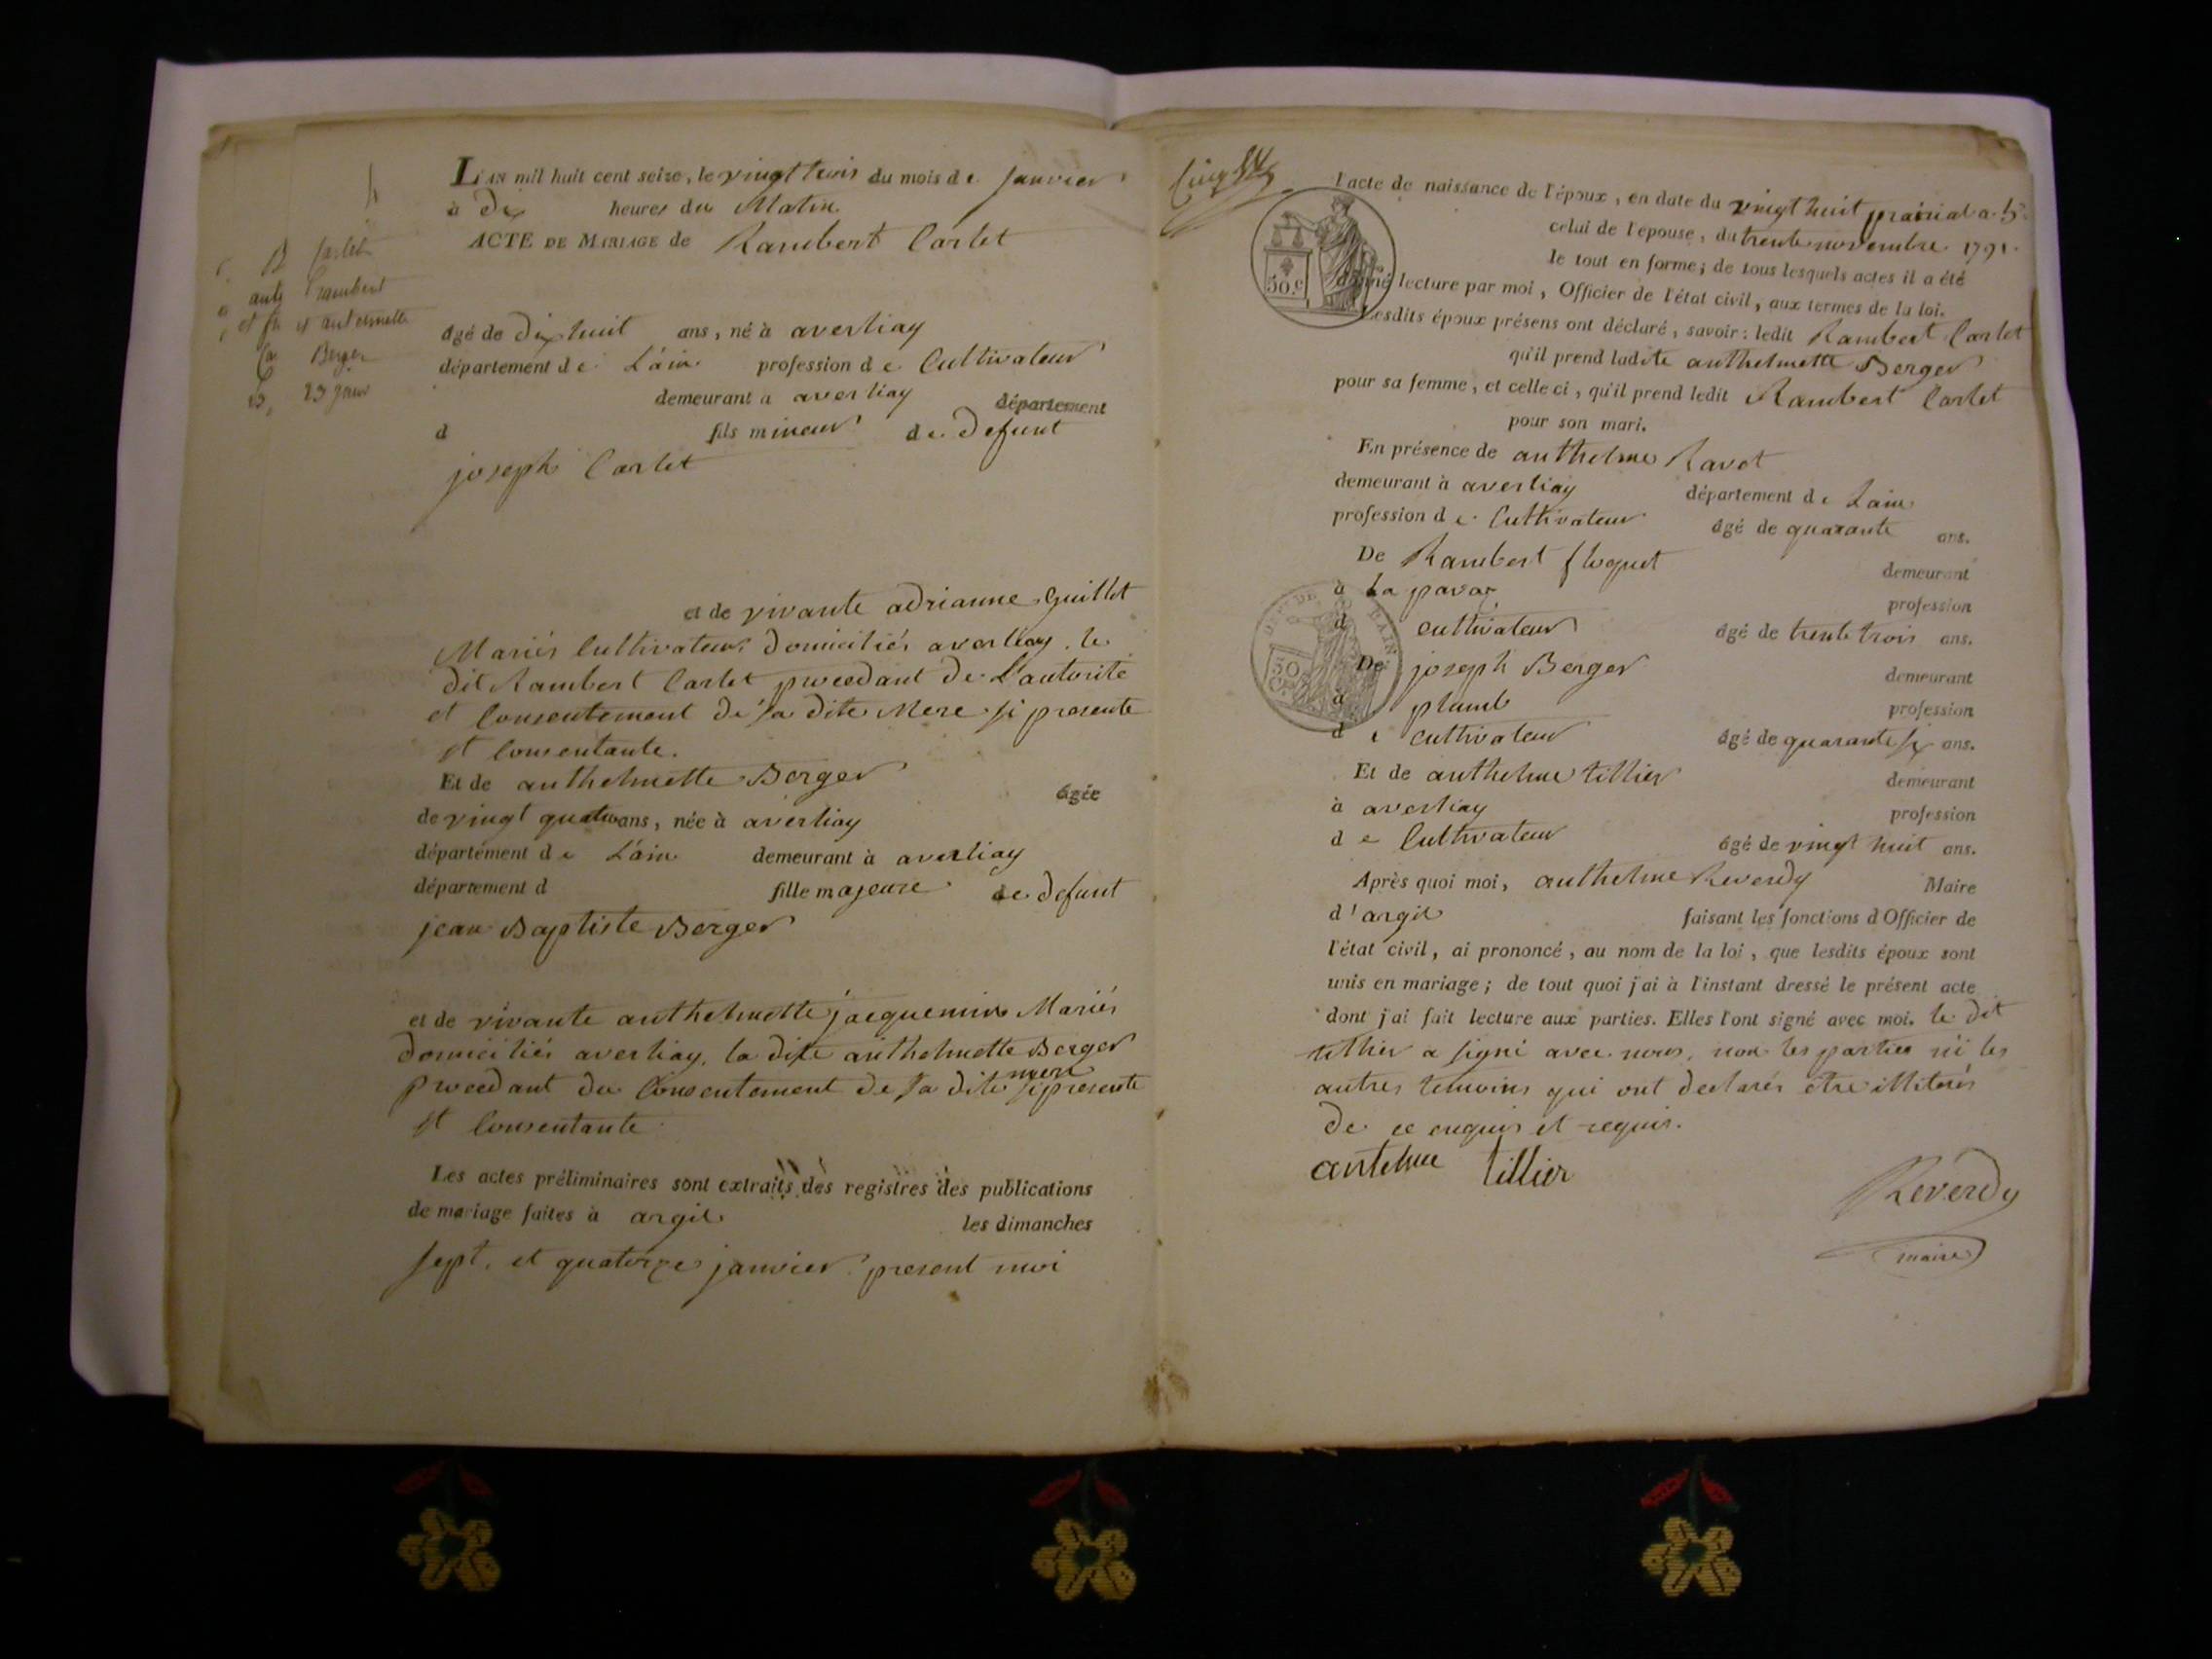 L'an mil huit cent seize, le vingt trois du mois de janvier
à dix heures du Matin
ACTE DE MARIAGE de Rambert Carlet
Carlet
Rambert
et anthermette
Berger
23 janv
âgé de dix huit ans, né à averliay
département de L'ain profession de Cultivateur
demeurant a averliay département
d fils mineur de defunt
joseph Carlet
et de vivante adrianne Guillet
Mariés Cultivateurs domiciliés averliay. le
dit Rambert Carlet procedant de L'autorité
et Consentement de sa dite Mere si presente
et Consentante.
Et de anthelmette Berger âgée
de vingt quatre ans, née à averliay
département de L'ain demeurant à averliay
département d fille majeure de defunt
jean Baptiste Berger
et de vivante anthelmette jacquemin Mariés
domiciliés averliay. la dite anthelmette Berger
procedant du Consentement de sa dite mere si presente
et Consentante
Les actes préliminaires sont extraits des registres des publications
de mariage faites à argil les dimanches
sept. et quatorze janvier present moi
l'acte de naissance de l'époux, en date du vingt huit prairial a. 5.
celui de l'épouse, du trente novembre 1791.
le tout en forme; de tous lesquels actes il a été
donné lecture par moi, Officier de l'état civil, aux termes de la loi.
Lesdits époux présens ont déclaré, savoir: ledit Rambert Carlet
qu'il prend ladite anthelmette Berger
pour sa femme, et celle ci, qu'il prend ledit Rambert Carlet
pour son mari.
En présence de anthelme Ravet
demeurant à averliay département de Lain
profession de Cultivateur âgé de quarante ans.
De Rambert floquet demeurant
à La pavaz profession
d cultivateur âgé de trente trois ans.
De joseph Berger demeurant
à plumb profession
de cultivateur âgé de quarante six ans.
Et de anthelme tillier demeurant
à averliay profession
de Cultivateur âgé de vingt huit ans.
Après quoi moi, anthelme Reverdy Maire
d'argil faisant les fonctions d'Officier de
l'état civil, ai prononcé, au nom de la loi, que lesdits époux sont
unis en mariage; de tout quoi j'ai à l'instant dressé le présent acte
dont j'ai fait lecture aux parties. Elles l'ont signé avec moi. le dit
tillier a signé avec nous, non les parties ni les
autres temoins qui ont declarés être illiterés
de ce enquis et requis.
antelme tillier
Reverdy
maire
50.c